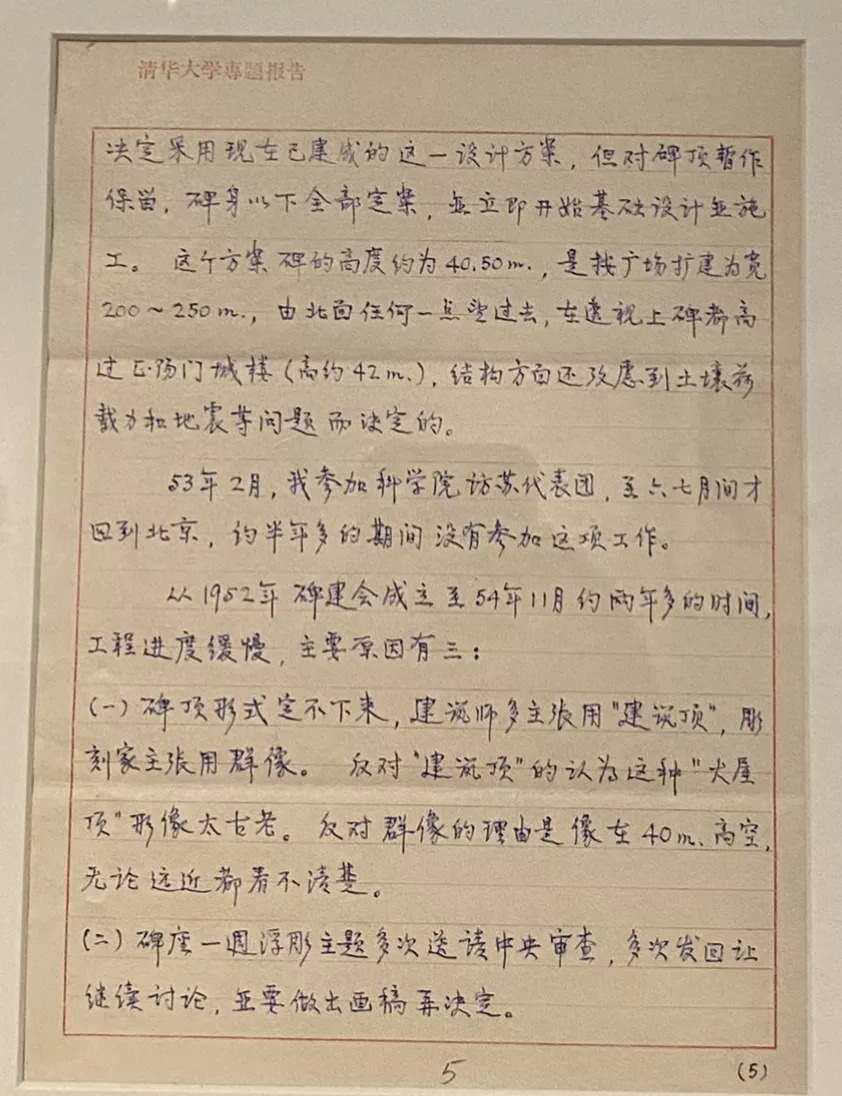 清华大学專題报告
决定采用现在已建成的这一设计方案，但对碑顶暂作
保留，碑身以下全部定案，並立即开始基础设计並施
工。 这个方案碑的高度约为40.50m.，是按广场扩建为宽
200～250m.，由北面任何一点望过去，在透视上碑都高
过正阳门城楼（高约42m.），结构方面还攷虑到土壤荷
载力和地震等问题而决定的。
53年2月，我参加科学院访苏代表团，至六七月间才
回到北京，约半年多的期间没有参加这项工作。
从1952年碑建会成立至54年11月约两年多的时间，
工程进度缓慢，主要原因有三：
(一) 碑顶形式定不下来，建筑师多主张用"建筑顶"，彫
刻家主张用群像。 反对"建筑顶"的认为这种"大屋
顶"形像太古老。反对群像的理由是像在40m.高空，
无论远近都看不清楚。
(二) 碑座一週浮彫主题多次送请中央审查，多次发回让
继续讨论，並要做出画稿再决定。
5
(5)